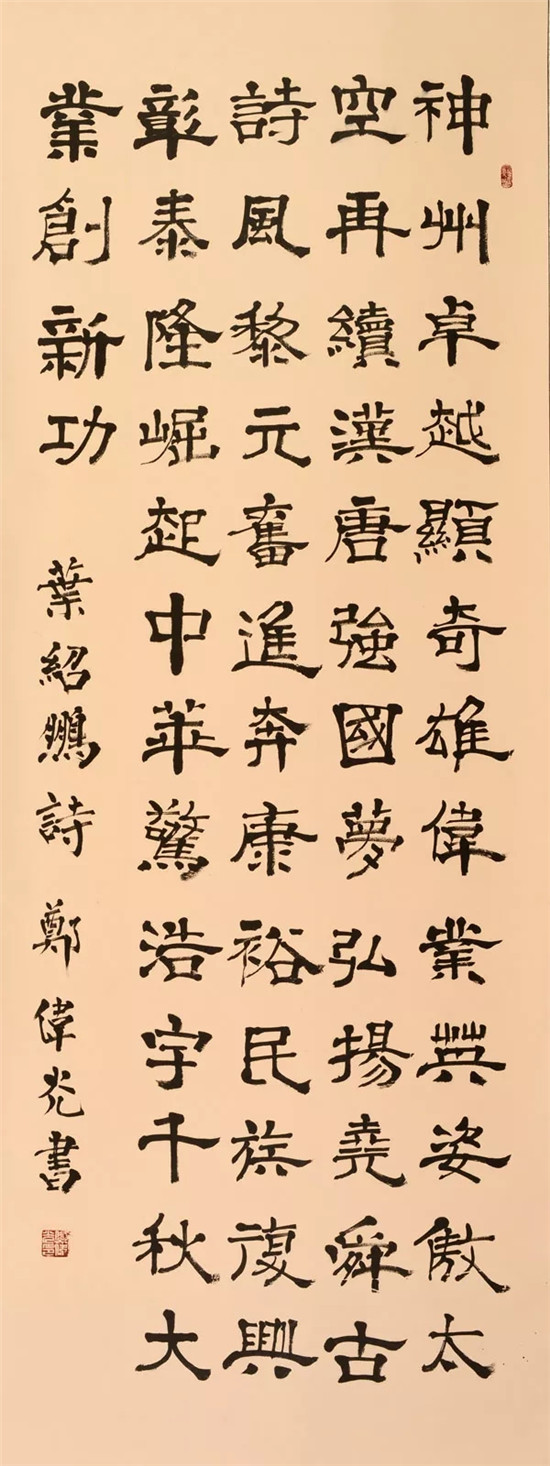 神州卓越顯奇雄偉業英姿傲太
空再續漢唐強國夢弘揚堯舜古
詩風黎元奮進奔康裕民族復興
彰泰隆崛起中華驚浩宇千秋大
業創新功
葉紹鵬詩 鄭偉光書